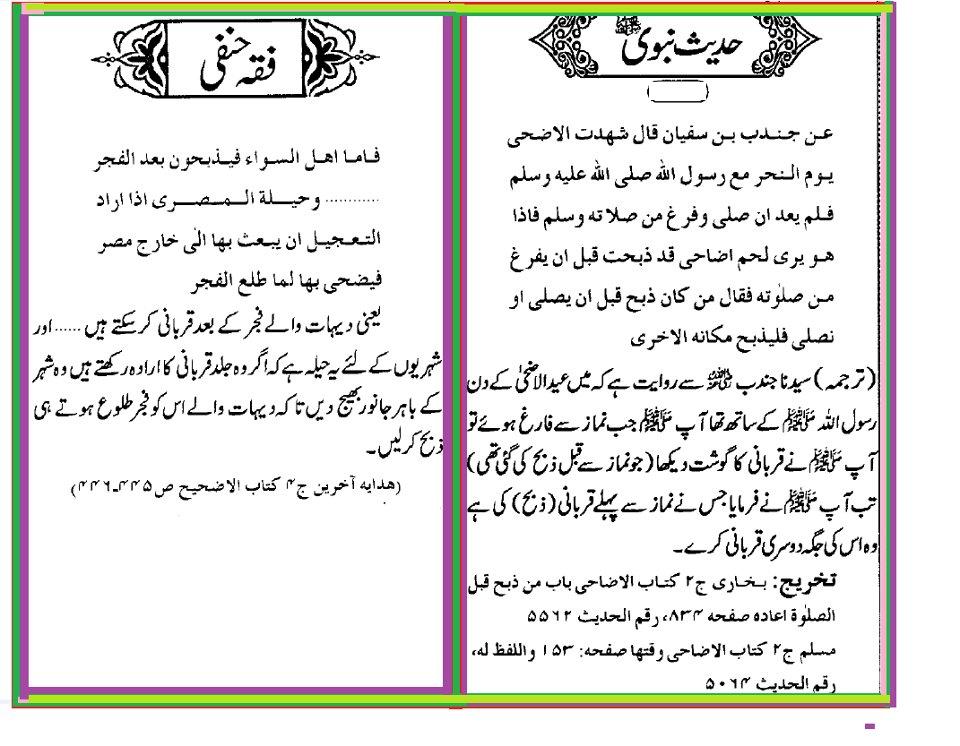 حدیث نبوی ﷺ
عن جندب بن سفیان قال شهدت الاضحی
یوم النحر مع رسول الله صلی الله علیه وسلم
فلم یعد ان صلی وفرغ من صلاته وسلم فاذا
هو یری لحم اضاحی قد ذبحت قبل ان یفرغ
من صلوٰته فقال من کان ذبح قبل ان یصلی او
نصلی فلیذبح مکانه الاخری
(ترجمہ) سیدنا جندب سے روایت ہے کہ میں عید الاضحیٰ کے دن
رسول اللہ ﷺ کے ساتھ تھا آپ ﷺ جب نماز سے فارغ ہوئے تو
آپ ﷺ نے قربانی کا گوشت دیکھا (جو نماز سے قبل ذبح کی گئی تھی)
تب آپ ﷺ نے فرمایا جس نے نماز سے پہلے قربانی (ذبح) کی ہے
وہ اس کی جگہ دوسری قربانی کرے۔
تخریج: بخاری ج۲ کتاب الاضاحی باب من ذبح قبل
الصلوٰة اعاده صفحه ۸۳۴، رقم الحدیث ۵۵۶۲
مسلم ج۲ کتاب الاضاحی وقتها صفحه: ۱۵۳ واللفظ له،
رقم الحدیث ۵۰۶۴
فقہ حنفی
فاما اهل السواء فیذبحون بعد الفجر
............ وحیلة المصری اذا اراد
التعجیل ان یبعث بها الی خارج مصر
فیضحی بها لما طلع الفجر
یعنی دیہات والے فجر کے بعد قربانی کر سکتے ہیں ...... اور
شہریوں کے لئے یہ حیلہ ہے کہ اگر وہ جلد قربانی کا ارادہ رکھتے ہیں وہ شہر
کے باہر جانور بھیج دیں تاکہ دیہات والے اس کو فجر طلوع ہوتے ہی
ذبح کرلیں۔
(هدایه آخرین ج۴ کتاب الاضحیح ص۴۴۵۔۴۴۶)